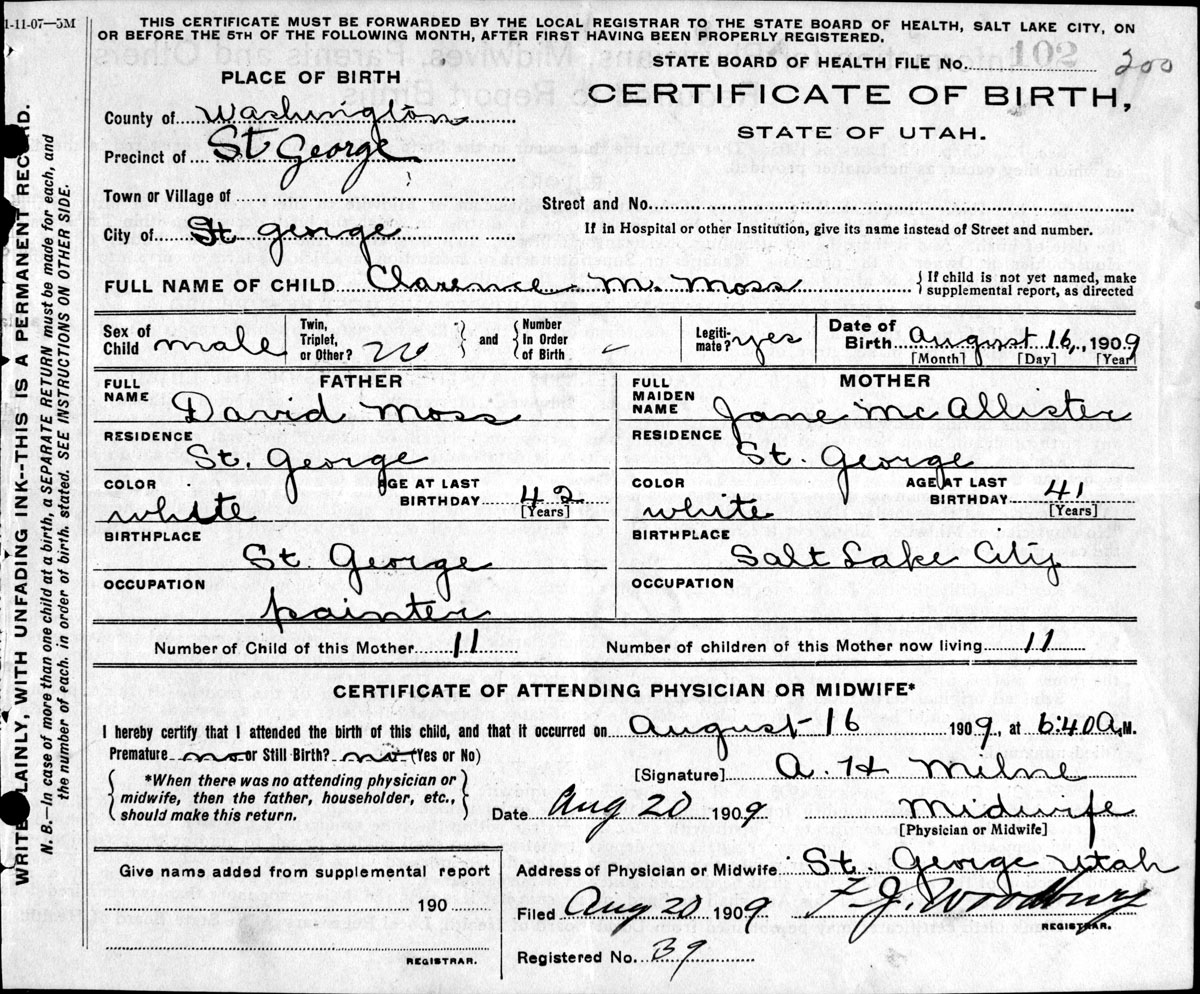 1-11-07—5M
THIS CERTIFICATE MUST BE FORWARDED BY THE LOCAL REGISTRAR TO THE STATE BOARD OF HEALTH, SALT LAKE CITY, ON
OR BEFORE THE 5TH OF THE FOLLOWING MONTH, AFTER FIRST HAVING BEEN PROPERLY REGISTERED.
STATE BOARD OF HEALTH FILE No. 102 200
PLACE OF BIRTH
CERTIFICATE OF BIRTH,
STATE OF UTAH.
County of Washington
Precinct of St George
Town or Village of
Street and No.
City of St George
If in Hospital or other Institution, give its name instead of Street and number.
FULL NAME OF CHILD Clarence M. Moss
{If child is not yet named, make
supplemental report, as directed
Sex of Child male
Twin, Triplet, or Other? no } and { Number In Order of Birth
Legiti-mate? yes
Date of Birth August 16, 1909
[Month] [Day] [Year]
FATHER
FULL NAME David Moss
RESIDENCE St. George
COLOR white
AGE AT LAST BIRTHDAY 42 [Years]
BIRTHPLACE St. George
OCCUPATION painter
MOTHER
FULL MAIDEN NAME Jane McAllister
RESIDENCE St. George
COLOR white
AGE AT LAST BIRTHDAY 41 [Years]
BIRTHPLACE Salt Lake City
OCCUPATION
Number of Child of this Mother 11
Number of children of this Mother now living 11
CERTIFICATE OF ATTENDING PHYSICIAN OR MIDWIFE*
I hereby certify that I attended the birth of this child, and that it occurred on August 16 1909, at 6:40 A.M.
Premature no or Still Birth? no (Yes or No)
{ *When there was no attending physician or
midwife, then the father, householder, etc.,
should make this return. }
[Signature] A. H Milne
Date Aug 20 1909
Midwife
[Physician or Midwife]
Give name added from supplemental report
190
REGISTRAR.
Address of Physician or Midwife St. George Utah
Filed Aug 20 1909 F. J. Woodbury
REGISTRAR.
Registered No. 39
WRITE PLAINLY, WITH UNFADING INK--THIS IS A PERMANENT RECORD.
N. B.—In case of more than one child at a birth, a SEPARATE RETURN must be made for each, and
the number of each, in order of birth, stated. SEE INSTRUCTIONS ON OTHER SIDE.